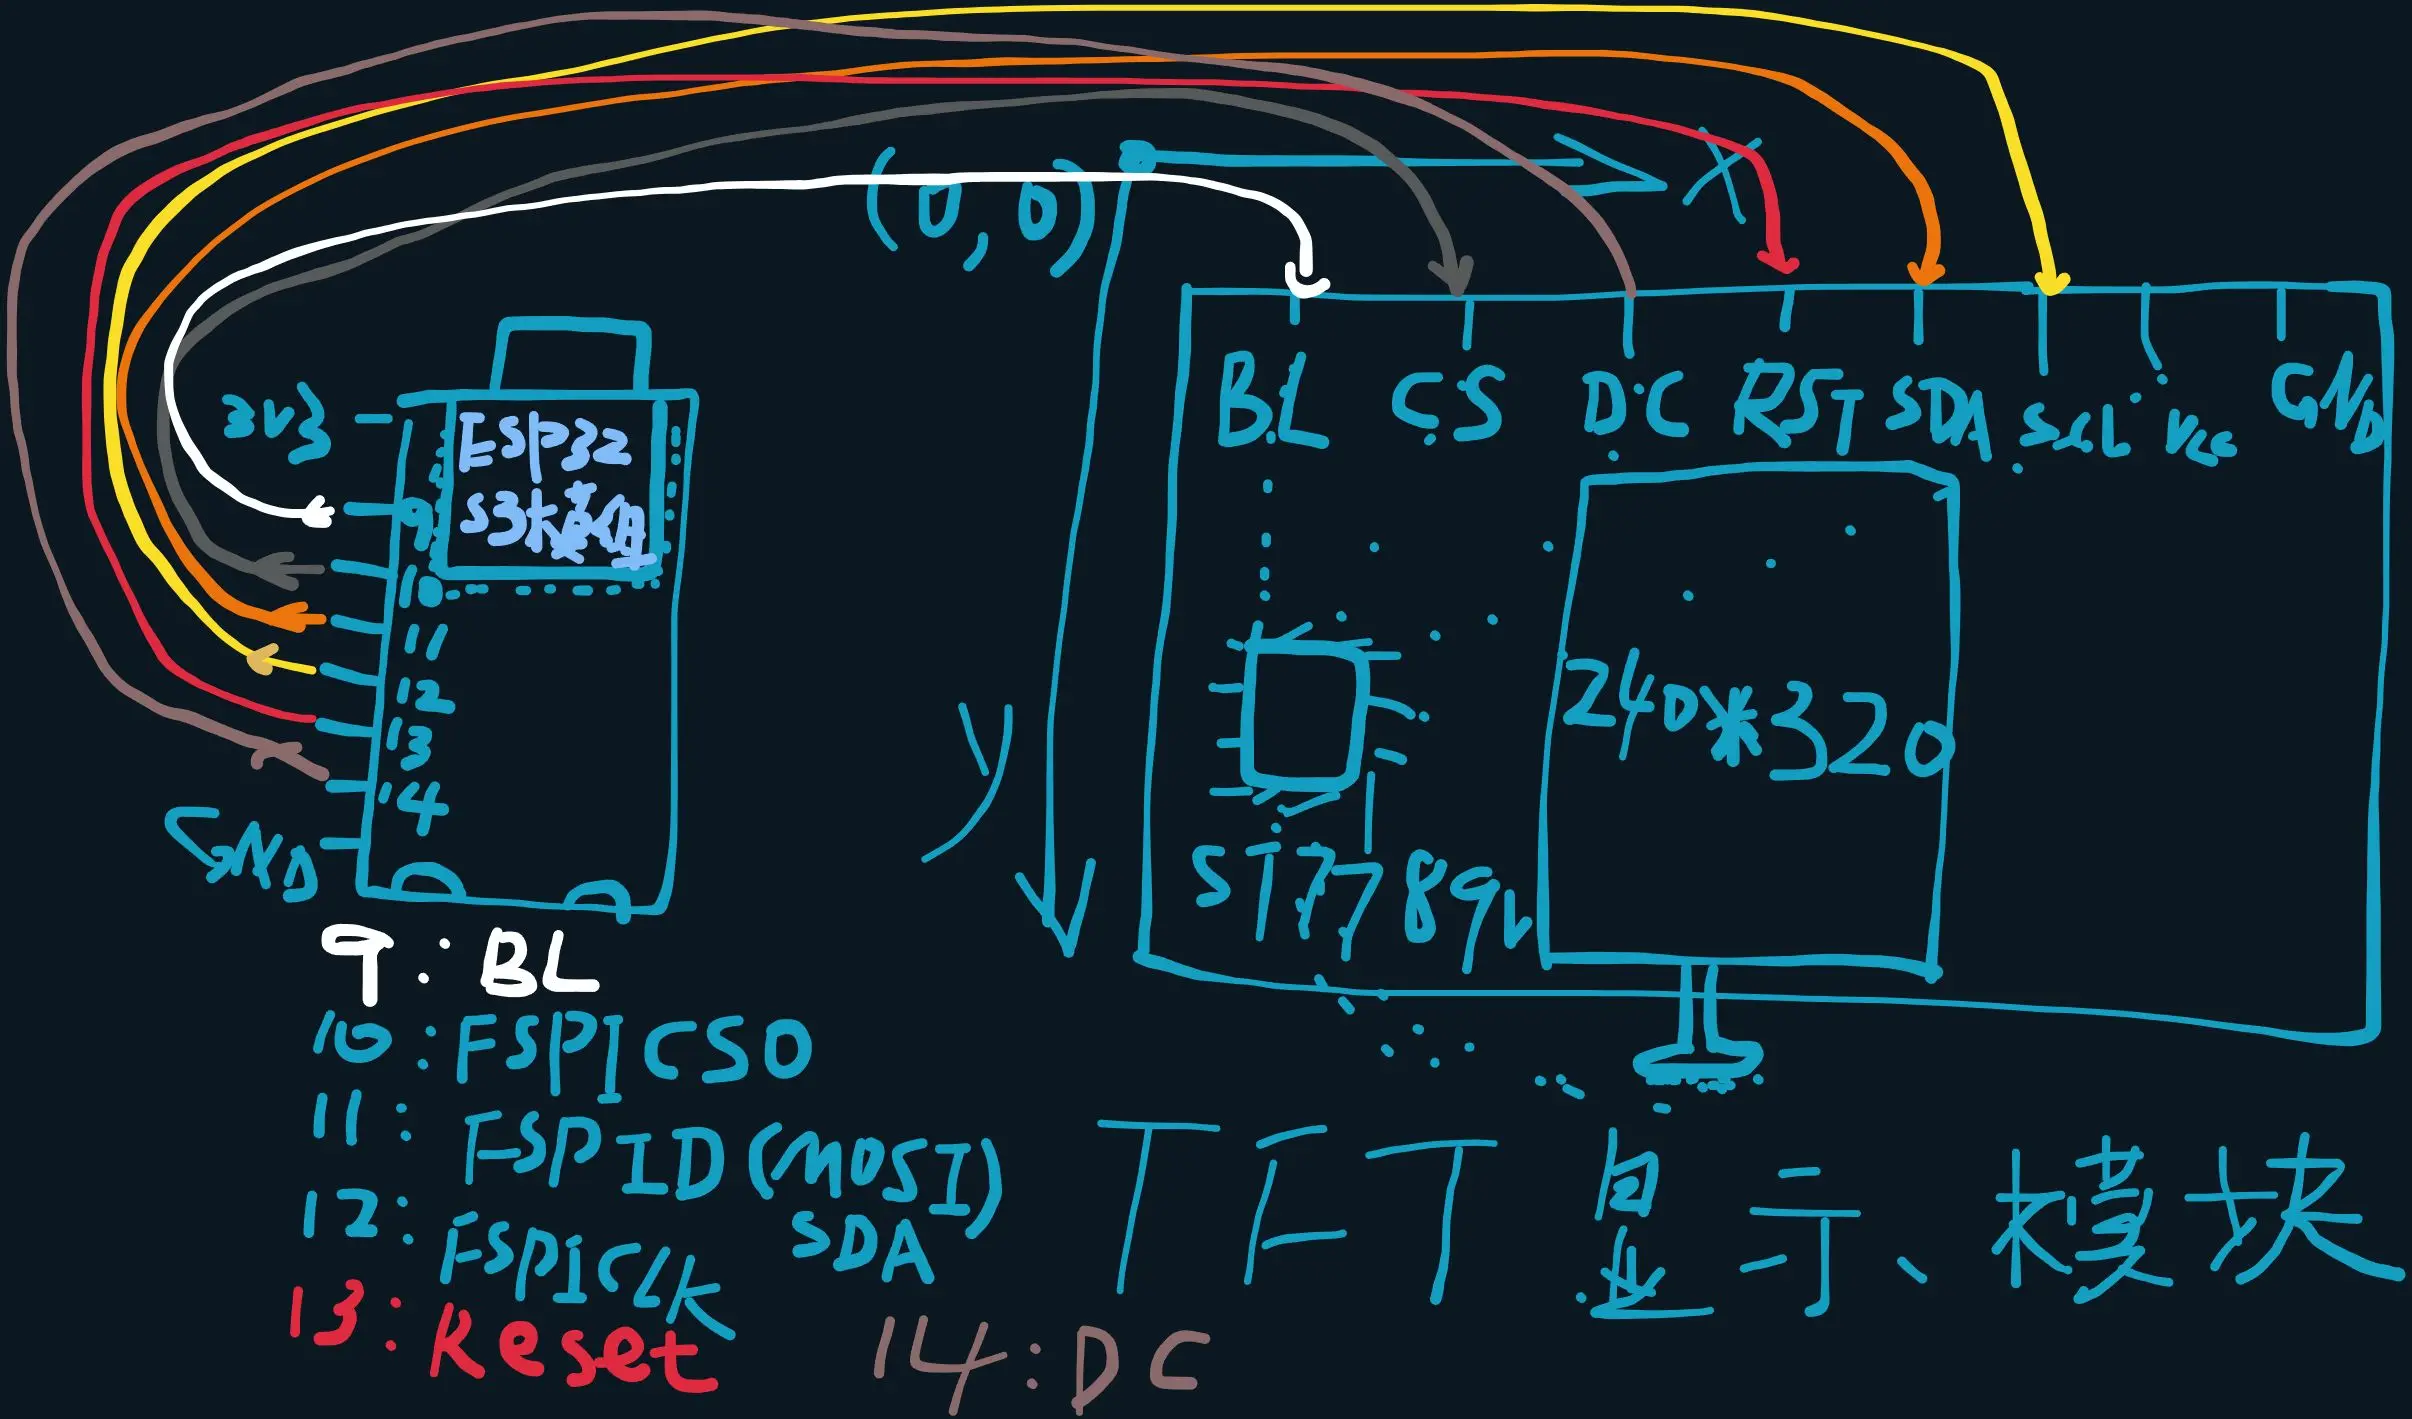 (0,0)
X
3V3
ESP32
S3模组
9
10
11
12
13
14
GND
y
BL CS DC RST SDA SCL Vcc GND
240*320
ST7789V
9:BL
10:FSPICS0
11:FSPID(MOSI)
SDA
12:FSPICLK
13:Reset
14:DC
TFT显示、模块